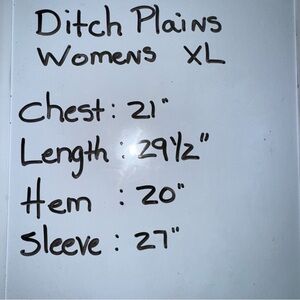 Ditch Plains
Womens XL
Chest: 21"
Length: 29½"
Hem : 20"
Sleeve: 27"